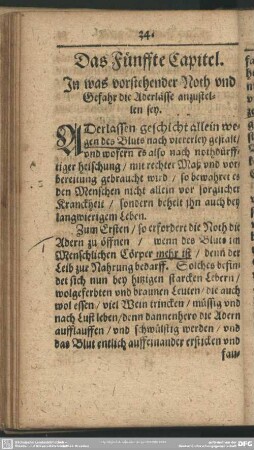 24.
Das Fünffte Capitel.
In was vorstehender Noth vnd
Gefahr die Aderlässe anzustel-
len sey.
ADerlassen geschicht allein we-
gen des Bluts nach vielerley gestalt /
vnd wofern es also nach nothdürff-
tiger heischung / mit rechter Maß vnd vor-
bereitung gebraucht wird / so bewahret es
den Menschen nicht allein vor sorglicher
Kranckheit / sondern behelt ihn auch bey
langwierigem Leben.
Zum Ersten / so erfordert die Noth die
Adern zu öffnen / wenn des Bluts im
Menschlichen Cörper mehr ist / denn der
Leib zur Nahrung bedarff. Solches befin-
det sich nun bey hitzigen starcken Leibern /
wolgeferbten vnd braunen Leuten / die auch
wol essen / viel Wein trincken / müssig vnd
nach Lust leben / denn dannenhero die Adern
aufflauffen / vnd schwülstig werden / vnd
das Blut entlich auffeinander ersticken vnd
fau-